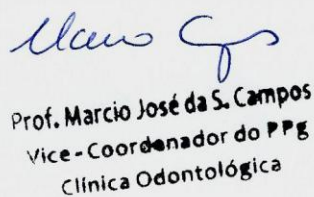 Prof. Marcio José da S. Campos
Vice-Coordenador do PPg
Clínica Odontológica